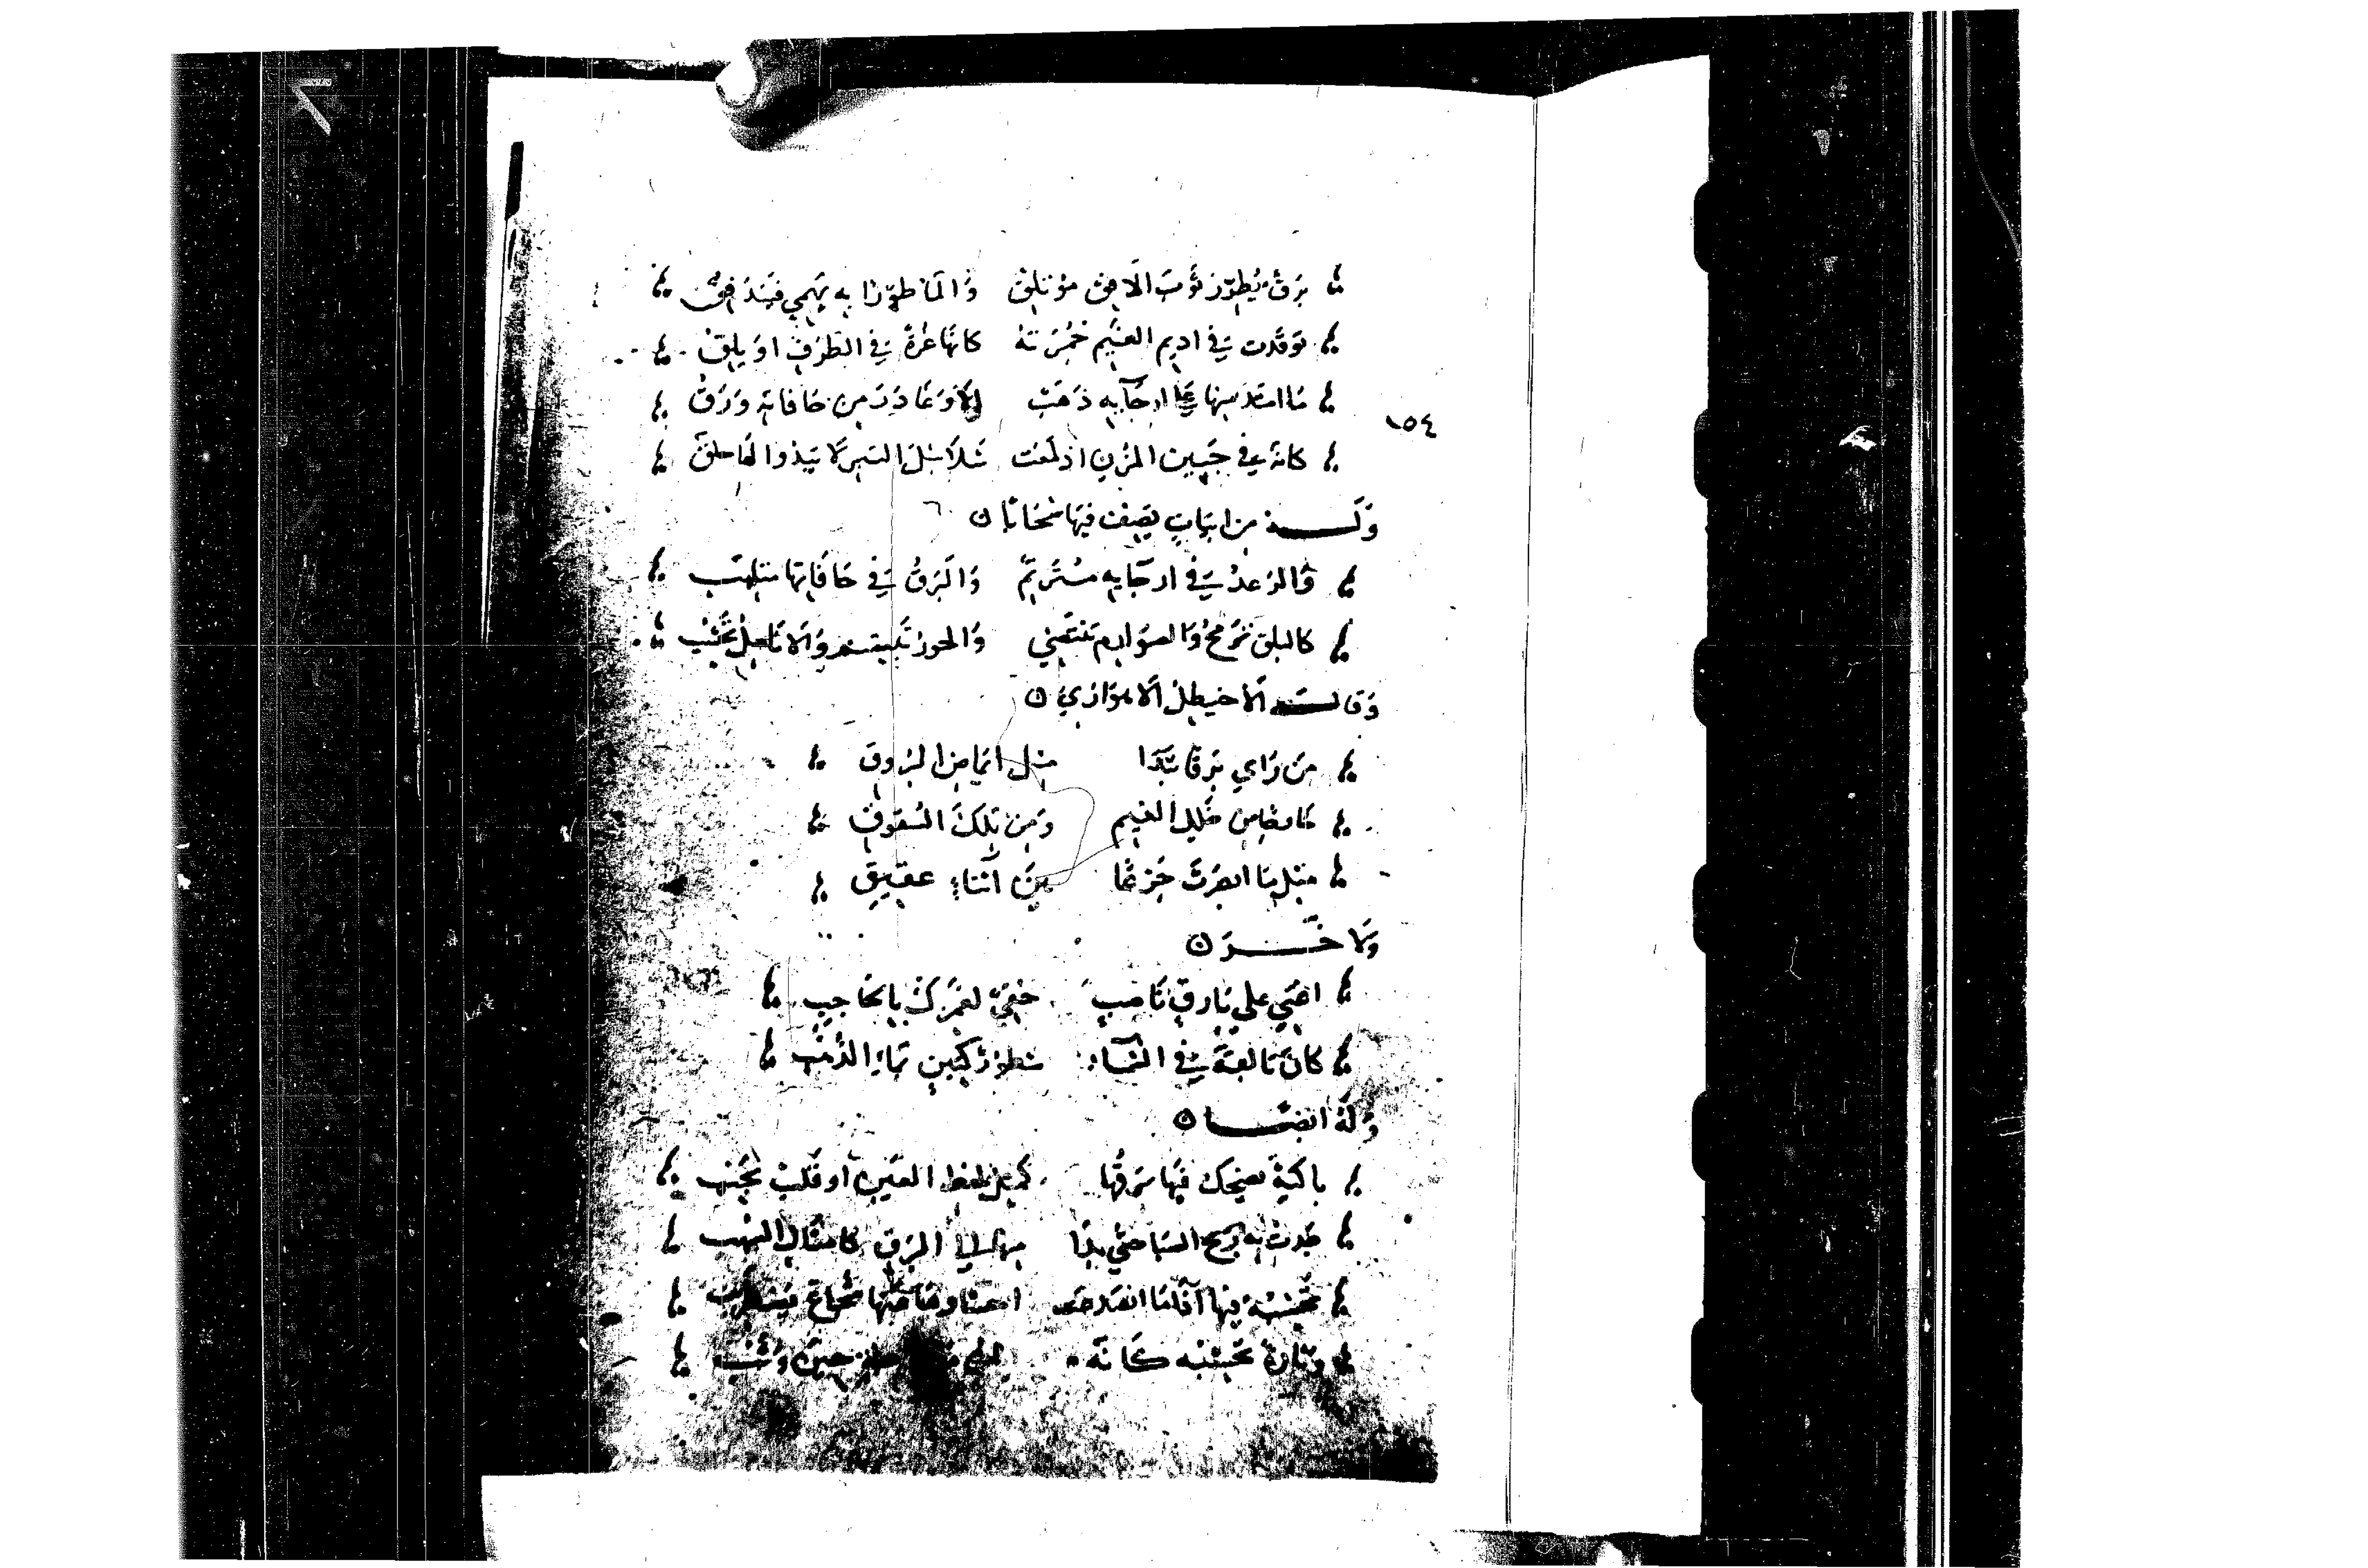 برق يطرز ثوب الافق مؤتلق والماطورا به يهمي فيندفق
توقدت في اديم الغيم جمرته كانها غرة في الطرف او بلق
ما امتد منها على ارجآيه ذهب الا وغادر من حافاته ورق
١٥٤
كانه في جبين المزن اذ لمعت سلاسل التبر لا يبدوا لها حلق
وله من ابيات يصف فيها سحابا
والرعد في ارجآيه مترنم والبرق في حافاتها متلهب
كالبلق ترمح والصوارم تنتضي والجور تبتسم والانامل تحسب
وقالت الاخيطل الاهوازي
من راي برقا بدا مثل ايماض البروق
لامعا من خلل الغيم ومن تلك الشقوق
مثل ما ابصرت جزعا بين اثناء عقيق
ولاخر
اعني علي بارق ناصب خفي لعمرك بالحاجب
كان تالقه في السماء سطور كتبن بماء الذهب
وله ايضا
باكية يضحك فيها برقها كمثل لحظ العين او قلب يجب
جدت به ريح الصبا حتي بدا منها لي البرق كامثال الشهب
تحسبه فيها اذا ما انصدعت احشاوها عنها شجاع يضطرب
وتارة تحسبه كانه حين وثب